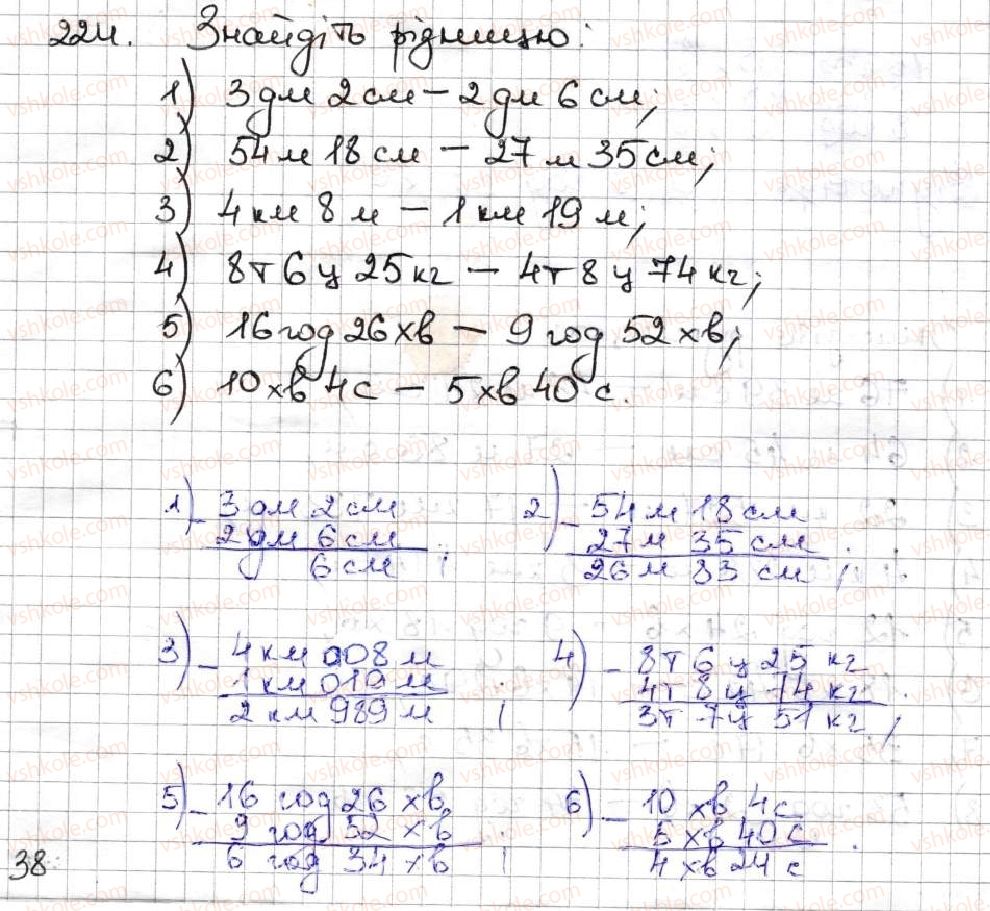 224. Знайдіть різницю:
1) 3 дм 2 см – 2 дм 6 см;
2) 54 м 18 см – 27 м 35 см;
3) 4 км 8 м – 1 км 19 м;
4) 8 т 6 ц 25 кг – 4 т 8 ц 74 кг;
5) 16 год 26 хв – 9 год 52 хв;
6) 10 хв 4 с – 5 хв 40 с.
1) – 3 дм 2 см
2 дм 6 см
6 см ;
2) – 54 м 18 см
27 м 35 см
26 м 83 см ;
3) – 4 км 008 м
1 км 019 м
2 км 989 м ;
4) – 8 т 6 ц 25 кг
4 т 8 ц 74 кг
3 т 7 ц 51 кг ;
5) – 16 год 26 хв
9 год 52 хв
6 год 34 хв ;
6) – 10 хв 4 с
5 хв 40 с
4 хв 24 с .
38
vshkole.com